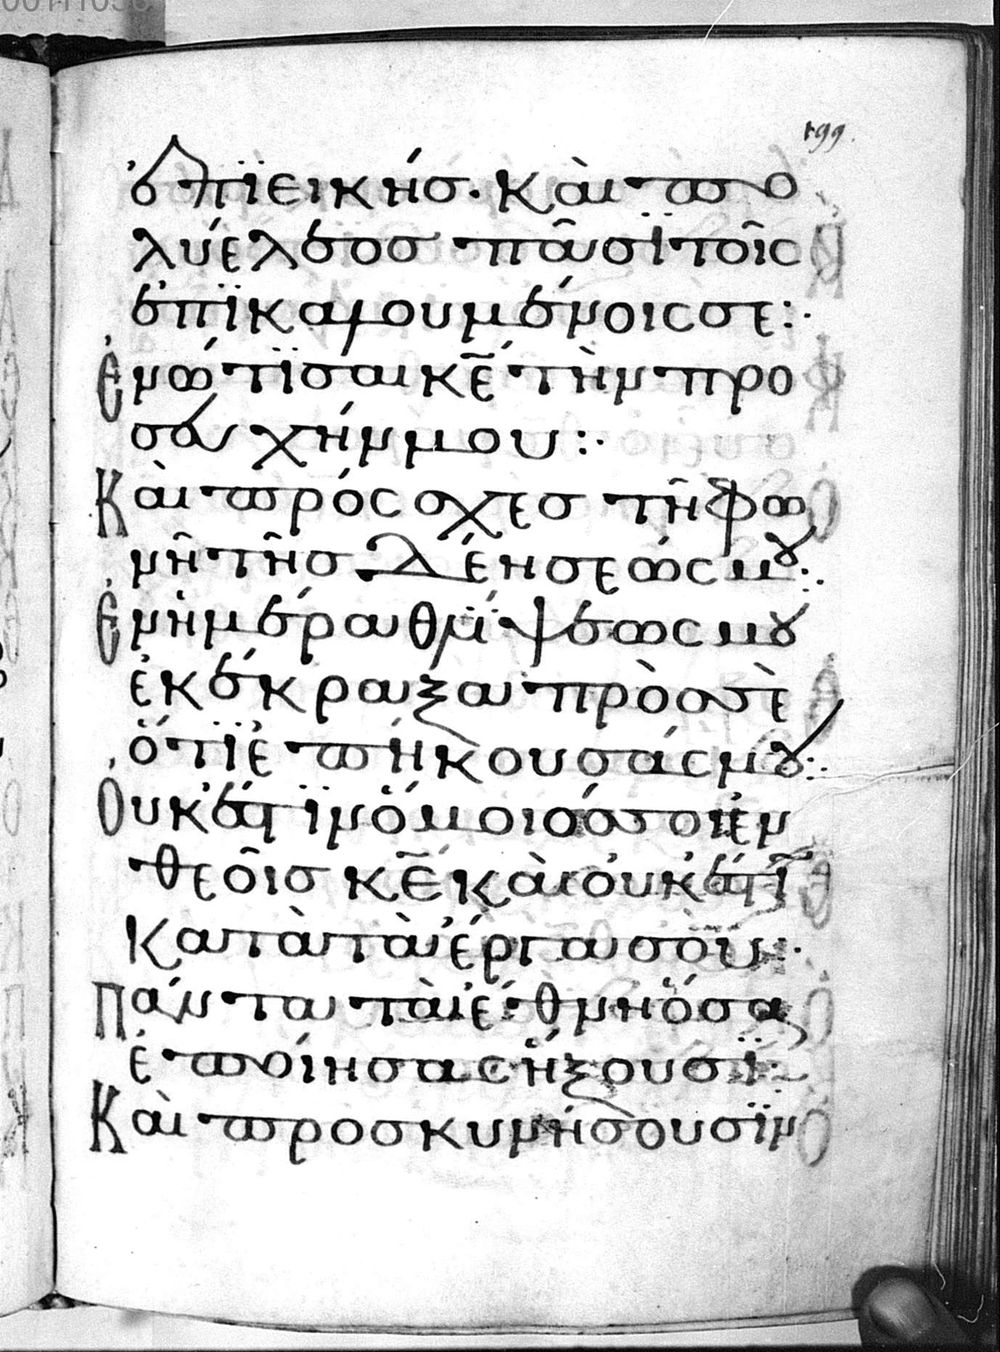 199
ἐπϊεικήσ· καὶ πο
λυέλεοσ πᾶσϊ τοῖς
ἐπϊκαλουμένοις σε:·
Ἐνώτϊσαι κ̅ε̅ τὴν προ
σευχήν μου:·
Καὶ πρόςσχεσ τῆ φω
νῆ τῆσ δεήσεώς μου:·
Ἐν ἡμέρα θλίψεώς μου
ἐκέκραξα πρὸσ σὲ
ὅτϊ ἐπήκουσάς μου:·
Οὐκ ἔστϊν ὅμοιόσ σοι ἐν
θεοῖσ κ̅ε̅ καὶ οὐκ ἔστϊ
κατὰ τὰ ἔργα σου:·
Πάντα τὰ ἔθνη ὅσα
ἐποίησας ἥξουσϊ:
Καὶ προσκυνήσουσϊν